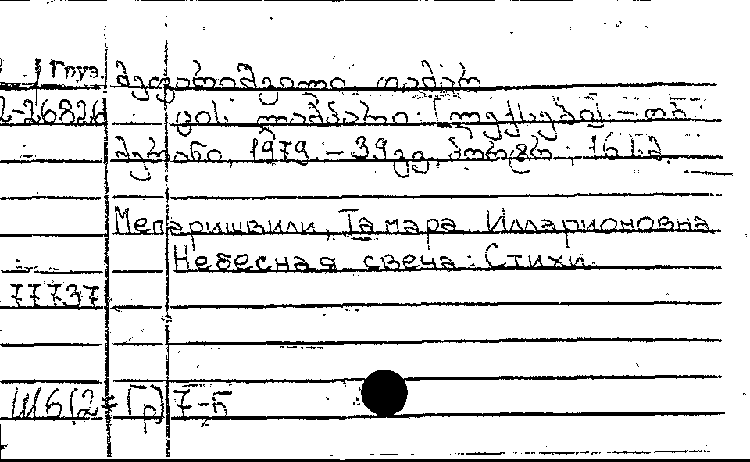 Груз. მეფარიშვილი, თამარ
2-26826 ცის ლამპარი: [ლექსები]. – თბ.:
მერანი, 1979. – 39 გვ., პორტრ.; 16 სმ.
Мепаришвили, Тамара Илларионовна
Небесная свеча: Стихи.
77737
Ш6(2=Гр)7-5